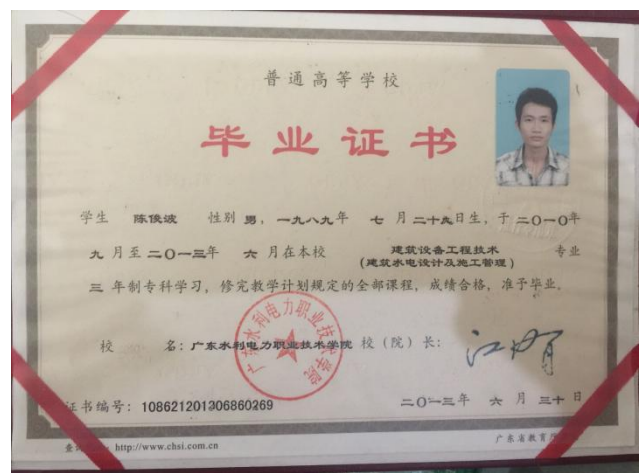 普通高等学校
毕业证书
学生 陈俊波 性别 男，一九八九年 七 月二十九日生，于二〇一〇年
九 月至二〇一三年 六 月在本校 建筑设备工程技术
(建筑水电设计及施工管理) 专业
三 年制专科学习，修完教学计划规定的全部课程，成绩合格，准予毕业。
校 名：广东水利电力职业技术学院 校（院）长：
广东水利电力职业技术学院
证书编号：108621201306860269 二〇一三年 六 月 三十 日
http://www.chsi.com.cn 广东省教育厅